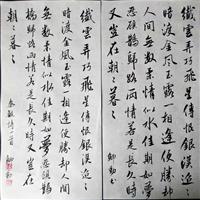 纖雲弄巧飛星傳恨銀漢迢々
暗渡金風玉露一相逢便勝却
人間無數柔情似水佳期如夢
忍顧鵲橋歸路兩情若是久長時
又豈在朝々暮々
纖雲弄巧飛星傳恨銀漢迢々
暗渡金風玉露一相逢便勝却人間
無數柔情似水佳期如夢忍顧鵲
橋歸路兩情若是久長時又豈在
朝々暮々
秦觀詞一首